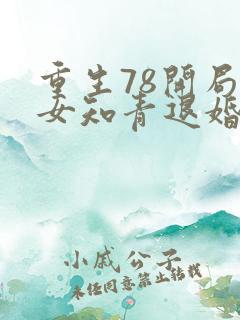 重生78开局
女知青退婚
小戚公子
未经同意禁止转载